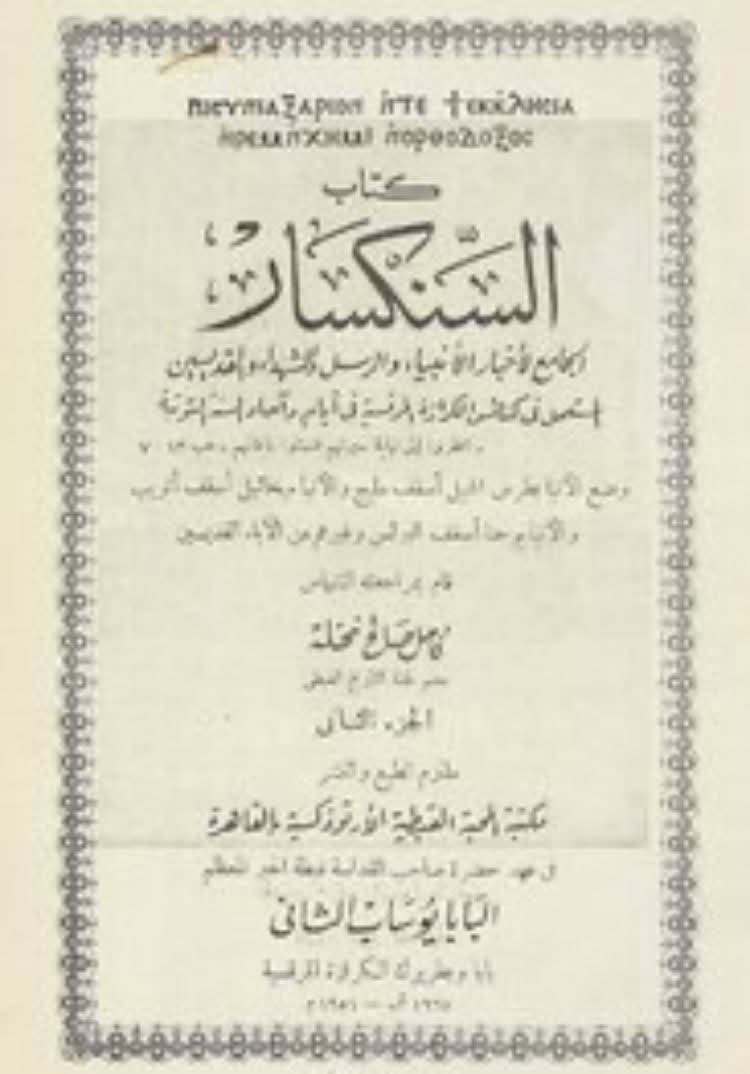 ⲡⲓⲥⲩⲛⲁⲝⲁⲣⲓⲟⲛ ⲛ̀ⲧⲉ ϯⲉⲕⲕⲗⲏⲥⲓⲁ
ⲛ̀ⲣⲉⲙⲛ̀ⲭⲏⲙⲓ ⲛ̀ⲟⲣⲑⲟⲇⲟⲝⲟⲥ
كتاب
السَّنكسار
الجامع لأخبار الأنبياء والرسل والشهداء والقديسين
المستعمل فى كنائس الكرازة المرقسية فى أيام وآحاد السنة التوتية
انظروا إلى نهاية سيرتهم فتمثلوا بإيمانهم عب ١٣ : ٧
وضع الأنبا بطرس الجميل أسقف مليج والأنبا ميخائيل أسقف أتريب
والأنبا يوحنا أسقف البرلس وغيرهم من الآباء القديسين
قام بمراجعته الشماس
كامل صالح نخلة
عضو لجنة التاريخ القبطى
الجزء الثانى
ملتزم الطبع والنشر
مكتبة المحبة القبطية الأرثوذكسية بالقاهرة
فى عهد حضرة صاحب القداسة غبطة الحبر المعظم
البابا يوساب الثانى
بابا وبطريرك الكرازة المرقسية
— ١٩٥١ م